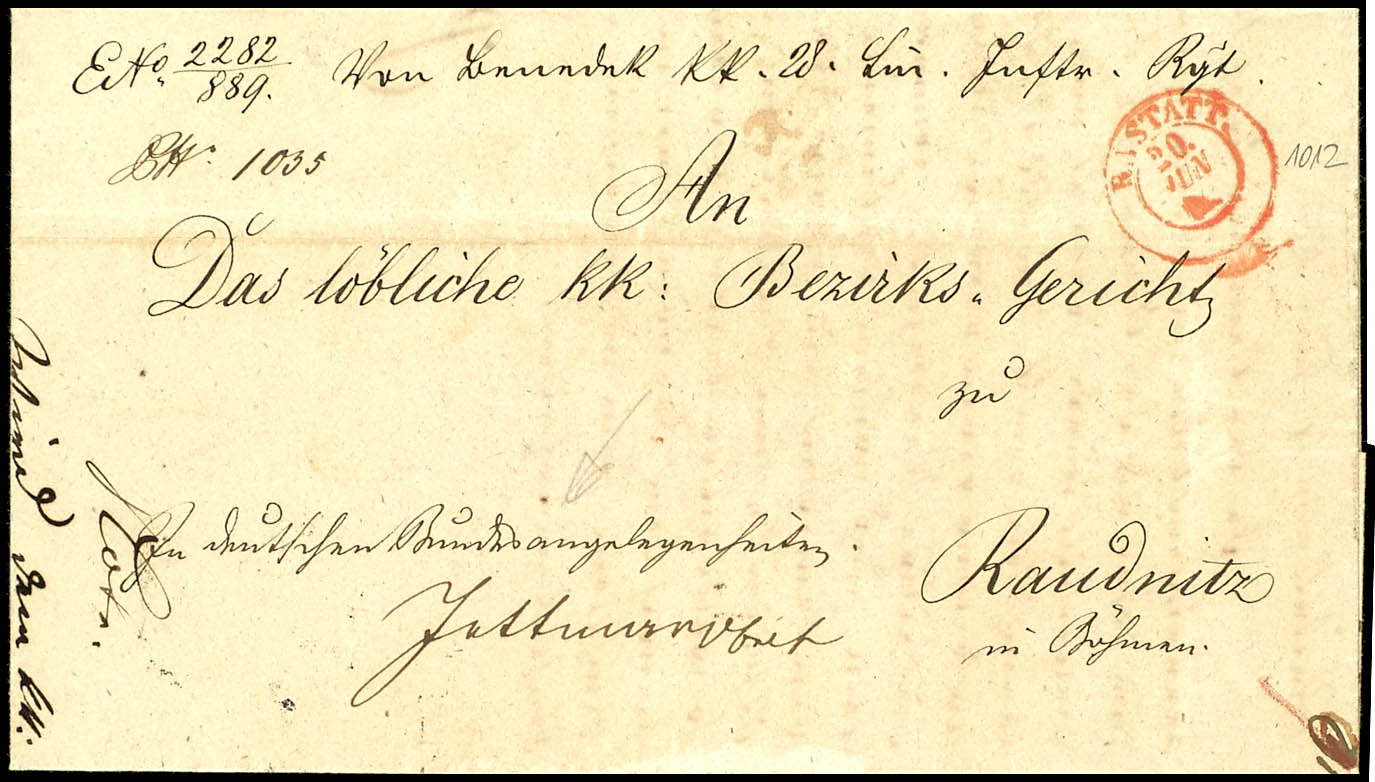 ENo 2282/889. Von Benedek kk. 28. Lin. Inftr. Rgt.
1035
RASTATT.
20.
JUN
1012
An
Das löbliche kk: Bezirks-Gericht
zu
In deutschen Bundesangelegenheiten.
Raudnitz
in Böhmen.